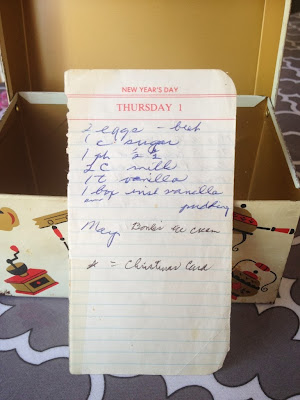 NEW YEAR'S DAY
THURSDAY 1
2 eggs - beat
1 c sugar
1 pt ½ ½
2 C milk
1 T vanilla
1 box inst vanilla
pudding
Mary ice cream
* = Christmas Card